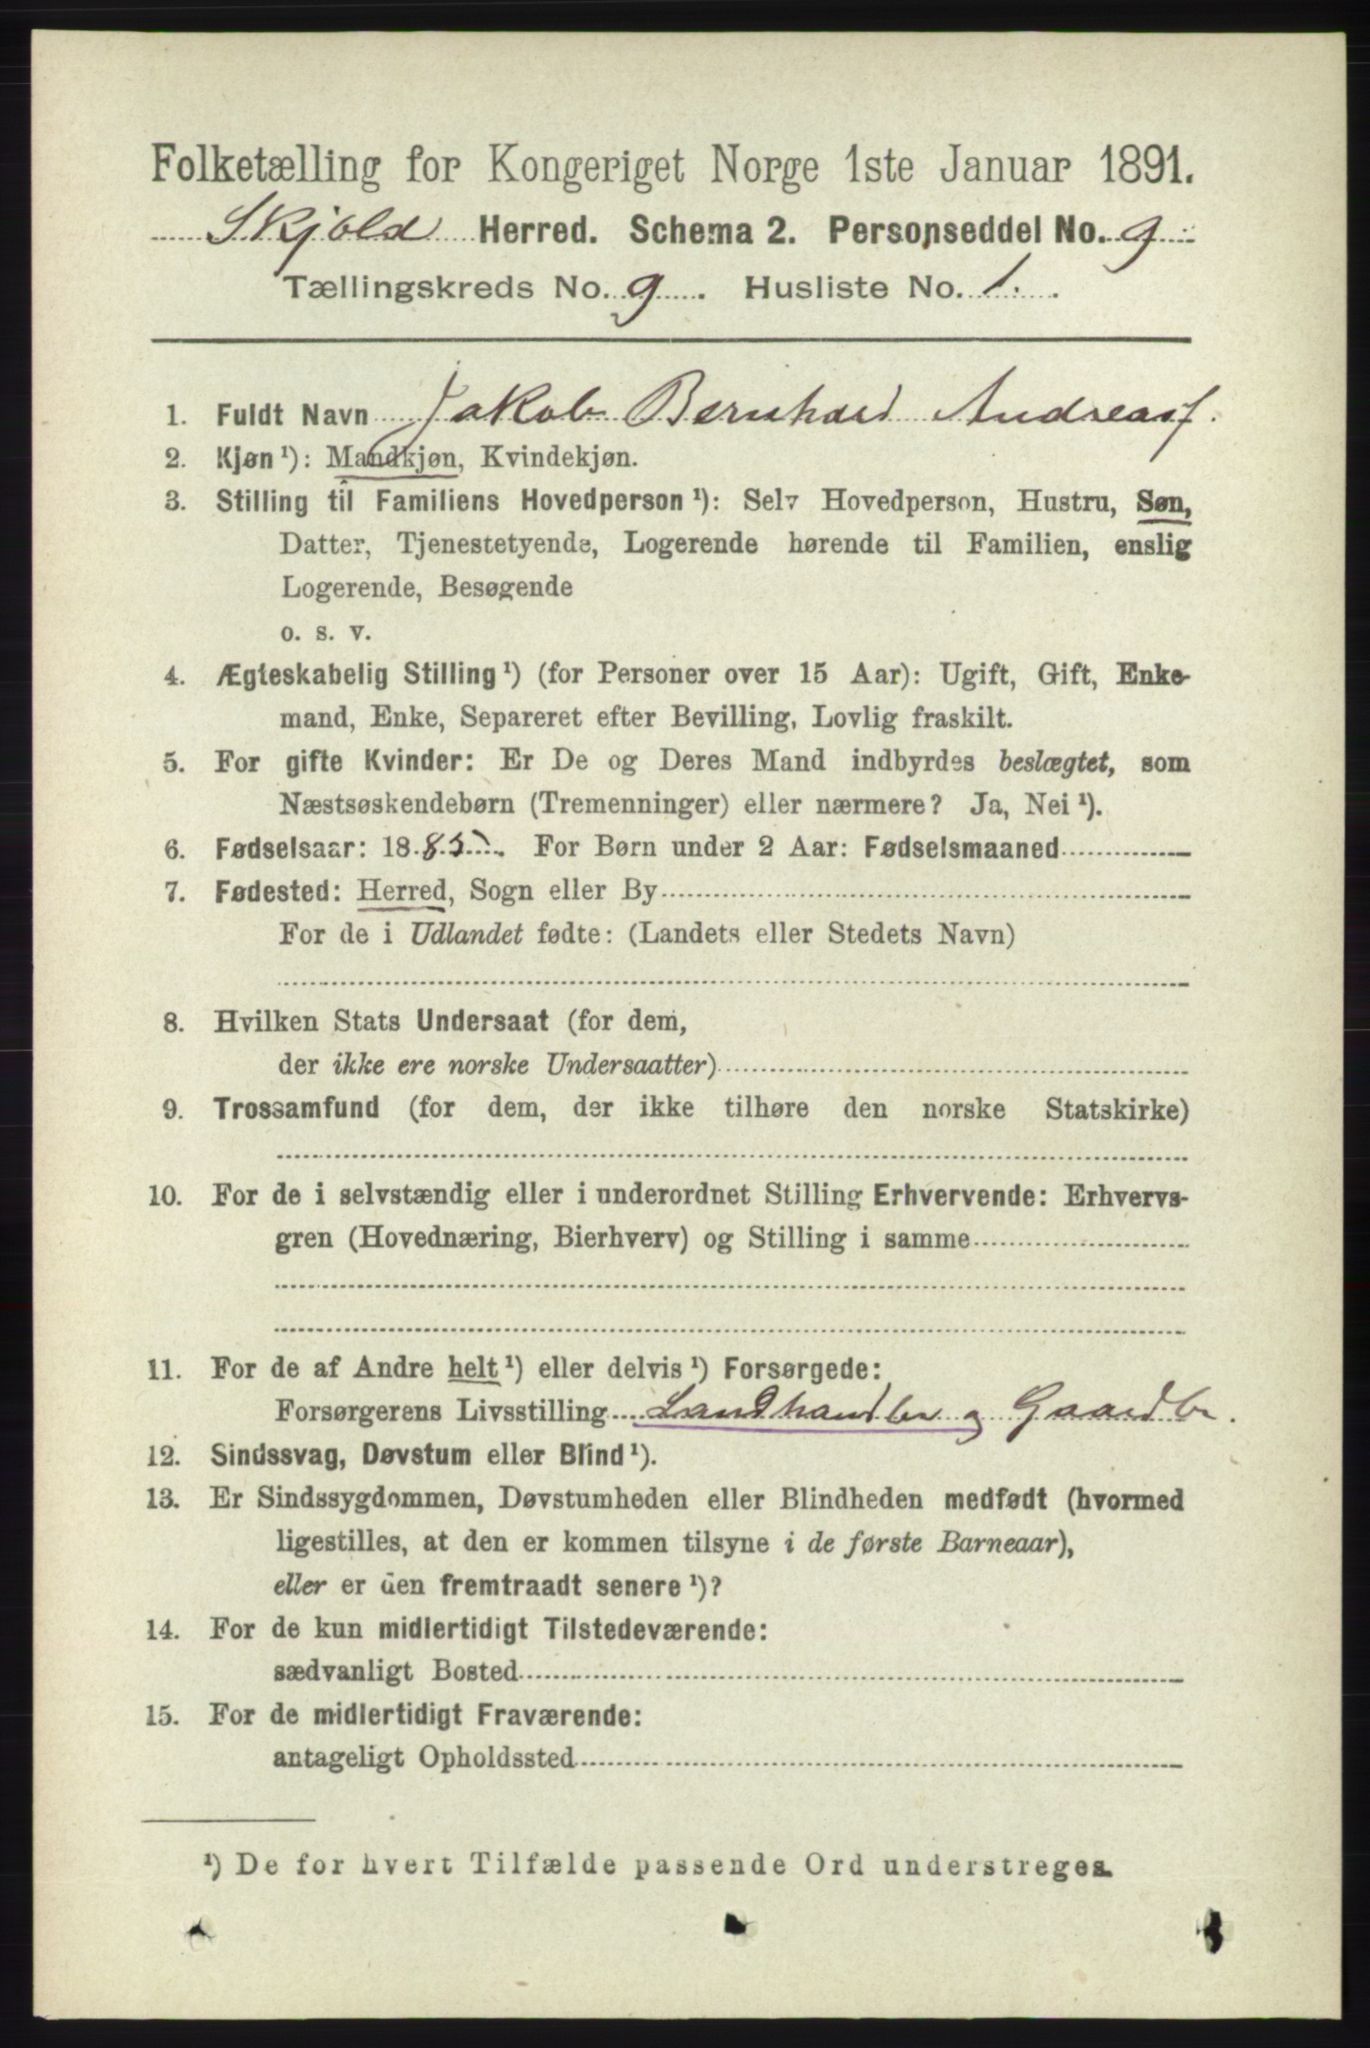 Folketælling for Kongeriget Norge 1ste Januar 1891.
Skjold Herred. Schema 2. Personseddel No. 9
Tællingskreds No. 9. Husliste No. 1.
1. Fuldt Navn Jakob Bernhard Andreasf.
2. Kjøn ¹): Mandkjøn, Kvindekjøn.
3. Stilling til Familiens Hovedperson ¹): Selv Hovedperson, Hustru, Søn,
Datter, Tjenestetyende, Logerende hørende til Familien, enslig
Logerende, Besøgende
o. s. v.
4. Ægteskabelig Stilling ¹) (for Personer over 15 Aar): Ugift, Gift, Enke-
mand, Enke, Separeret efter Bevilling, Lovlig fraskilt.
5. For gifte Kvinder: Er De og Deres Mand indbyrdes beslægtet, som
Næstsøskendebørn (Tremenninger) eller nærmere? Ja, Nei ¹).
6. Fødselsaar: 1885. For Børn under 2 Aar: Fødselsmaaned
7. Fødested: Herred, Sogn eller By
For de i Udlandet fødte: (Landets eller Stedets Navn)
8. Hvilken Stats Undersaat (for dem,
der ikke ere norske Undersaatter)
9. Trossamfund (for dem, der ikke tilhøre den norske Statskirke)
10. For de i selvstændig eller i underordnet Stilling Erhvervende: Erhvervs-
gren (Hovednæring, Bierhverv) og Stilling i samme
11. For de af Andre helt ¹) eller delvis ¹) Forsørgede:
Forsørgerens Livsstilling Landhandler og Gaardbr.
12. Sindssvag, Døvstum eller Blind ¹).
13. Er Sindssygdommen, Døvstumheden eller Blindheden medfødt (hvormed
ligestilles, at den er kommen tilsyne i de første Barneaar),
eller er den fremtraadt senere ¹)?
14. For de kun midlertidigt Tilstedeværende:
sædvanligt Bosted
15. For de midlertidigt Fraværende:
antageligt Opholdssted
¹) De for hvert Tilfælde passende Ord understreges.